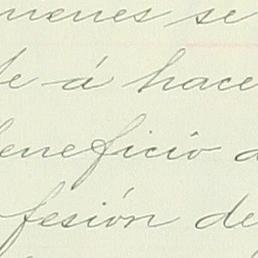 menes se
de á hace
beneficio d
fesión de